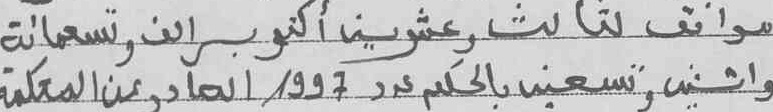 موافق لثالث وعشرين أكتوبر الف وتسعمائة
واثنين وتسعين بالحكم عدد 1997 الصادر عن المحكمة